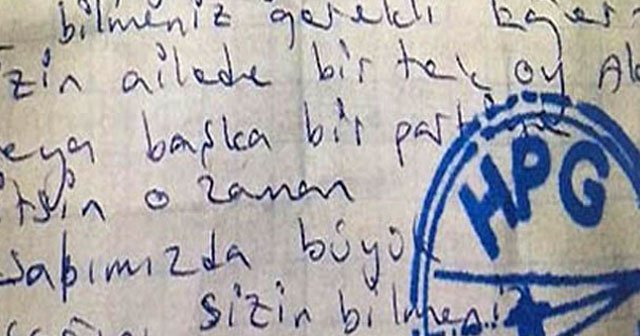 bilmeniz gerekli eğer
izin ailede bir tek oy AK
eya başka bir partiye
itsin o zaman
sabımızda büyük
sizin bilmeniz
HPG